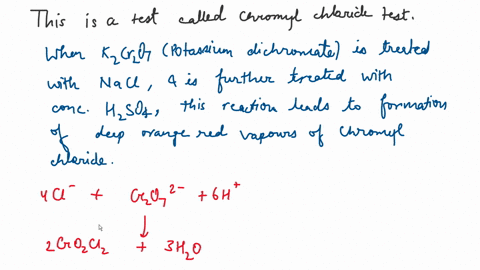 This is a test called Chromyl chloride test.
When K₂Cr₂O₇ (Potassium dichromate) is treated
with NaCl, & is further treated with
conc. H₂SO₄, this reaction leads to formation
of deep orange red vapours of Chromyl
chloride.
4Cl⁻ + Cr₂O₇²⁻ + 6H⁺
↓
2CrO₂Cl₂ + 3H₂O